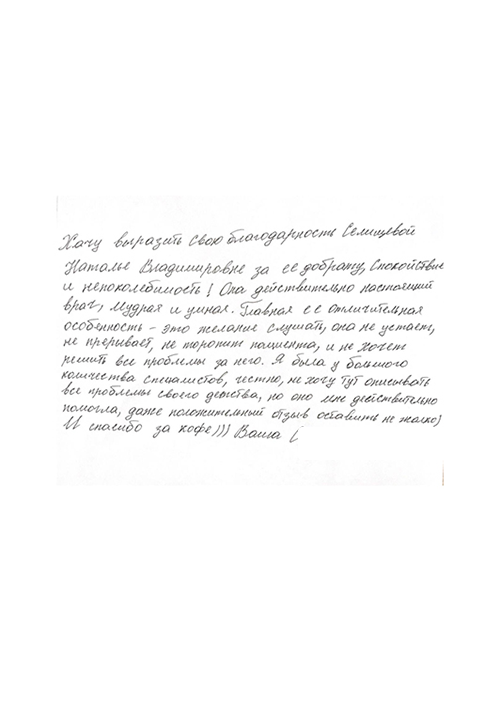 Хачу выразить свою благодарность Селищевой
Наталье Владимировне за её доброту, спокойствие
и непоколебимость! Она действительно настоящий
врач, мудрая и умная. Главная её отличительная
особенность – это желание слушать, она не устает,
не прерывает, не торопит пациента, и не хочет
решить все проблемы за него. Я была у большого
количества специалистов, честно, не хочу тут описывать
все проблемы своего детства, но оно мне действительно
помогла, даже положительный отзыв оставить не жалко)
И спасибо за кофе))) Ваша